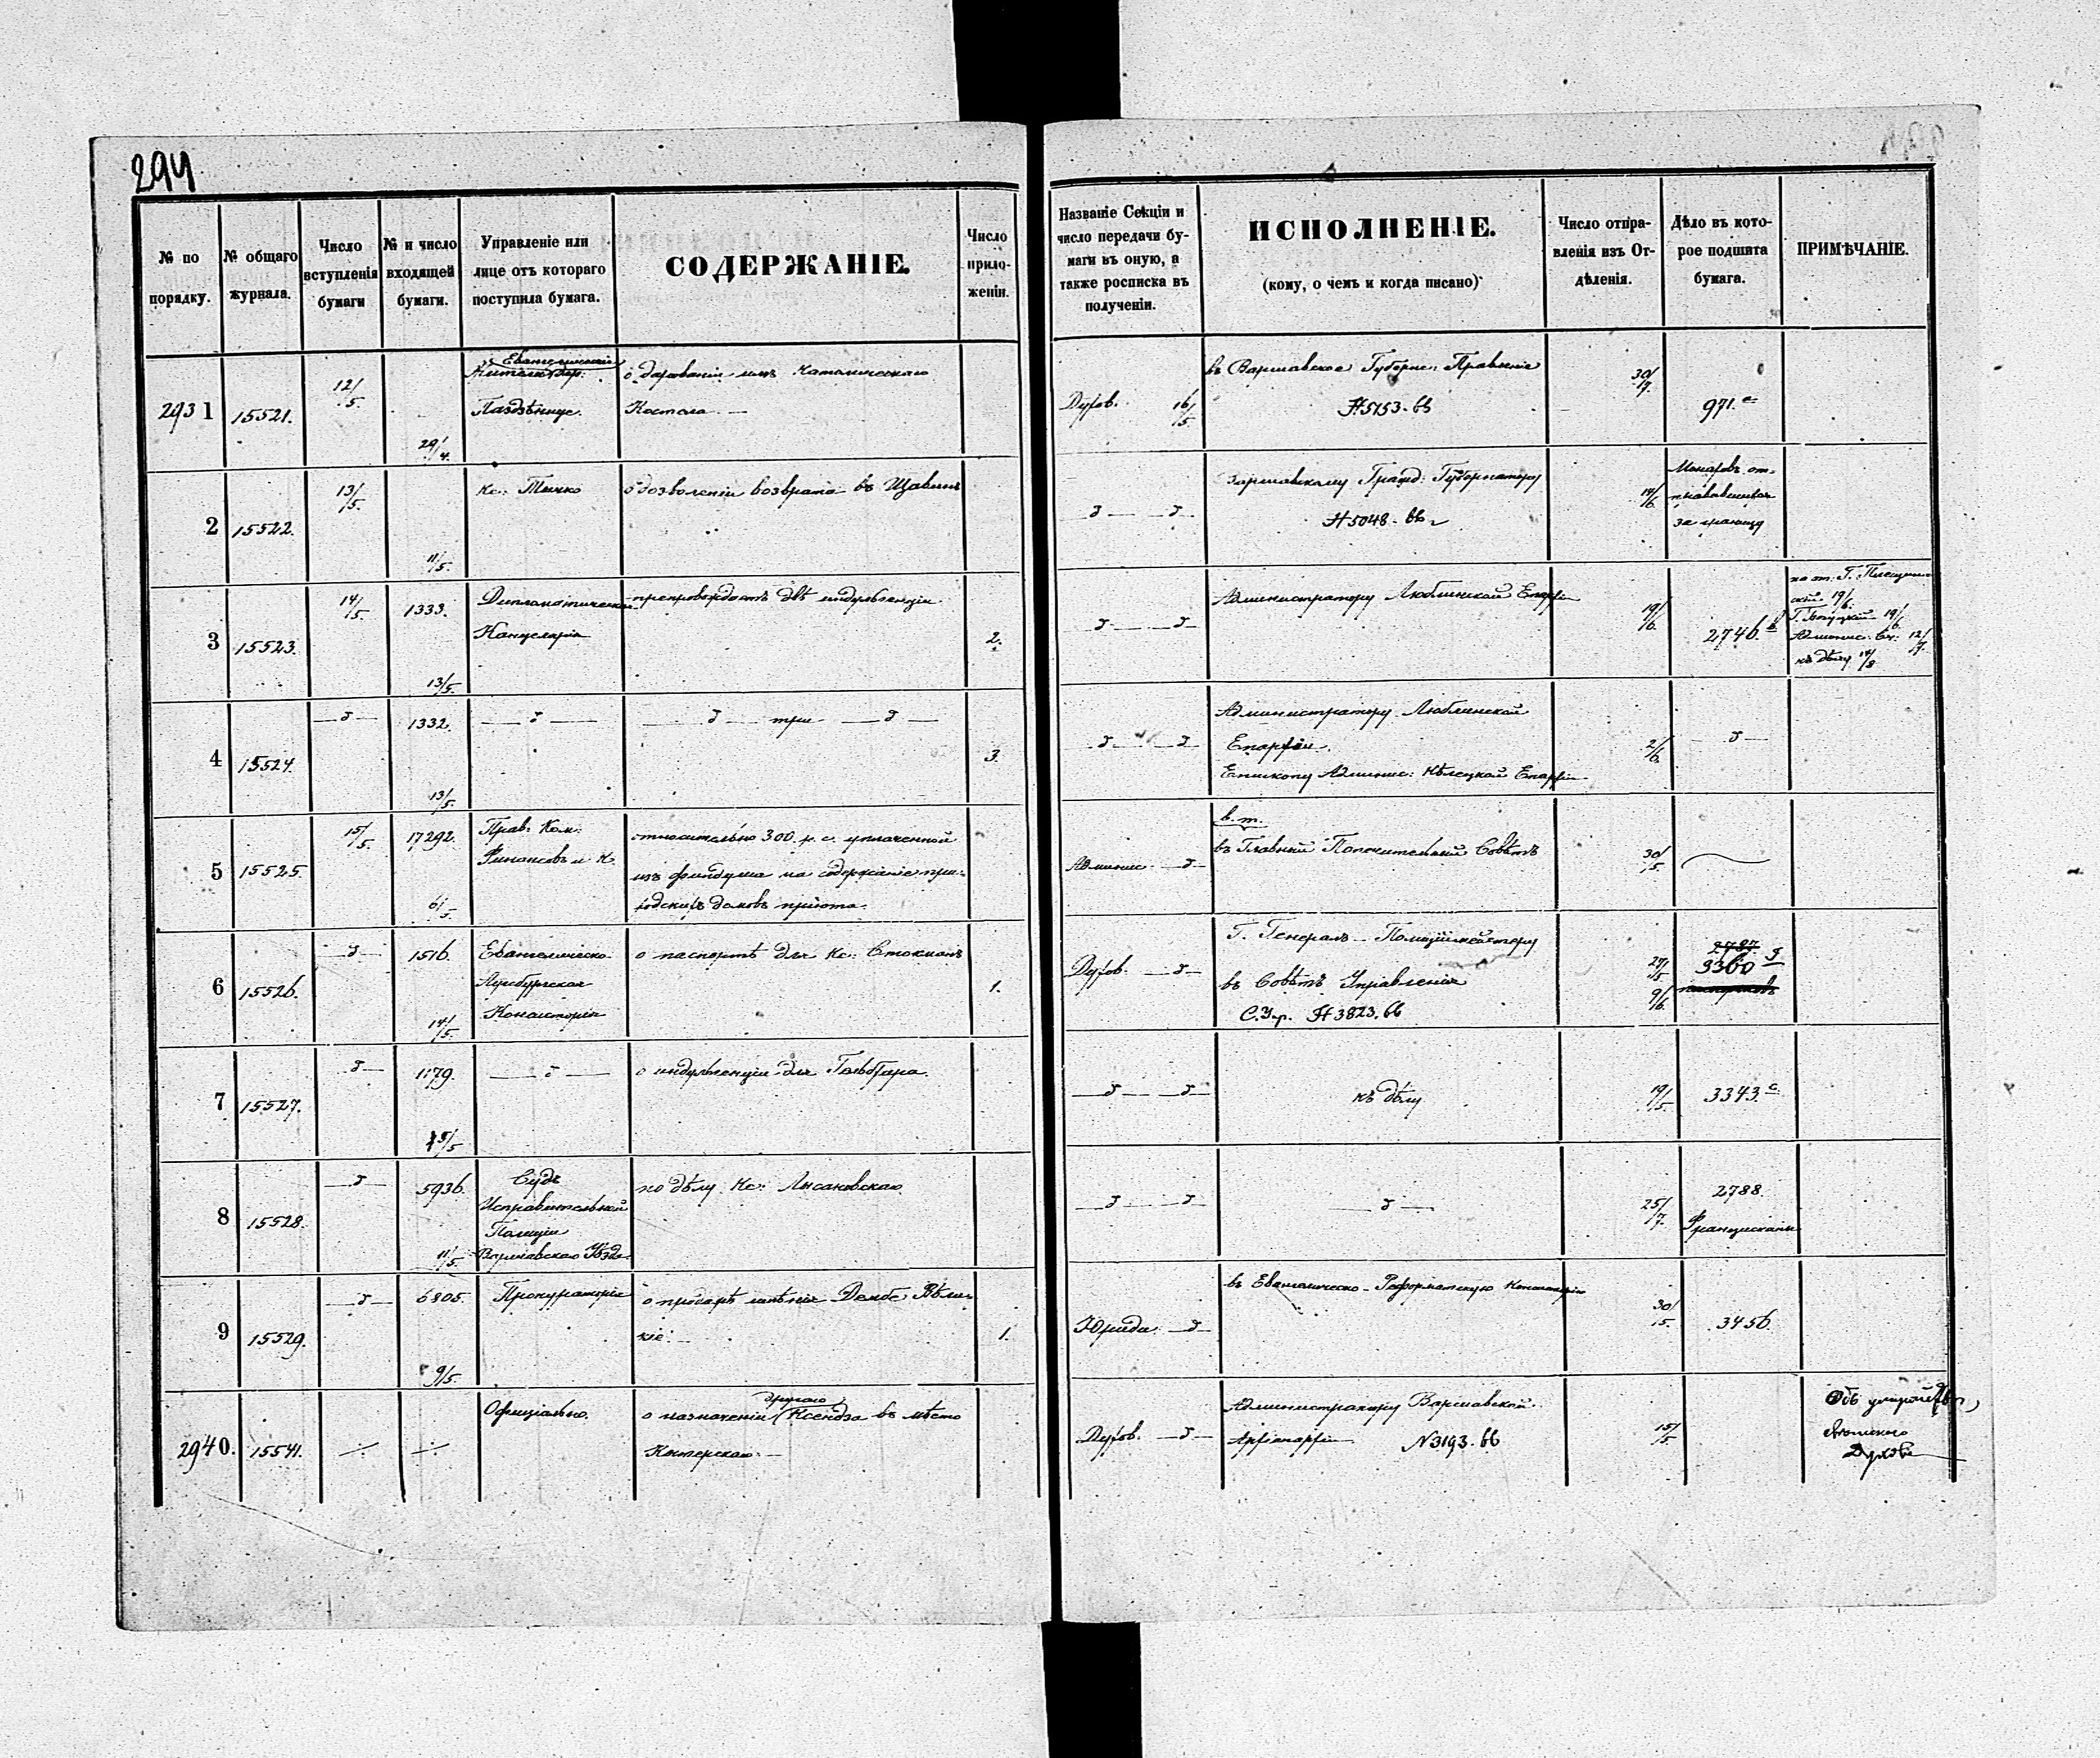 294
№ по
порядку.
№ общаго
журнала.
Число
вступленія
бумаги
№ и число
входящей
бумаги.
Управленіе или
лице отъ котораго
поступила бумага.
СОДЕРЖАНІЕ.
Число
прило-
женіи.
Названіе Секціи и
число передачи бу-
маги въ оную, а
также росписка въ
полученіи.
ИСПОЛНЕНІЕ.
(кому, о чемъ и когда писано)
Число отпра-
вленія изъ От-
дѣленія.
Дѣло въ кото-
рое подшита
бумага.
ПРИМѢЧАНІЕ.
2931
15521.
12/5.
29/4.
Жители дер:
о дарованіи имъ Католическаго
Костела. —
Духов. 16/5
въ Варшавское Губерн: Правленіе
№ 5153. вв
30/7.
971.
2
15522.
13/5.
11/5.
Кс: Тычко
о дозволеніи возврата въ
— д — — д —
Варшавскому Гражд: Губернатору
№ 5048. вв
19/6
за границу
3
15523.
14/5.
1333.
13/5.
Дипломатическая
Канцелярія
препровождаетъ двѣ индульгенціи
2.
— д — — д —
Администратору Люблинской Епархіи
19/6.
2746.
19/6.
19/6
12/7.
къ дѣлу 14/8
4
15524.
— д —
1332.
13/5.
— д —
— д — три — д —
3.
— д — — д —
Администратору Люблинской
Епархіи.
Епископу Админис: Кѣлецкой Епархіи
2/6.
— д —
5
15525.
15/5.
17292.
6/5.
Прав: Ком:
Финансовъ и К.
относительно 300. р. с. уплаченной
изъ фундуша на содержаніе при-
ходскихъ домовъ пріюта.
Админис — д —
в. т.
въ Главный Попечительный Совѣтъ
30/5.
6
15526.
— д —
1516.
14/5.
Евангелическо-
Аугсбургская
Консисторія
о паспортѣ для Кс: Стокманъ
1.
Духов. — д —
Г. Генералъ-Полиціймейстеру
въ Совѣтъ Управленія
С. Упр. № 3823. вв
27/5
9/6.
2787.
3360
7
15527.
— д —
1179.
15/5
— д —
о индульгенціи для
— д — — д —
къ дѣлу
19/5.
3343. с
8
15528.
— д —
5936.
11/5.
Судъ
Исправительной
Полиціи
Варшавскаго Уѣзда
по дѣлу Кс: Лисаковскаго
— д — — д —
— д —
25/7.
2788.
Францискане
9
15529.
— д —
6805.
9/5.
Прокураторія
о продажѣ имѣнія Дембе Вѣли-
кіе. —
1.
Юрида: — д —
въ Евангелическо-Реформатскую Консисторію
30/5.
3456.
2940.
15541.
Официально.
о назначеніи другаго Ксендза въ мѣсто
Духов. — д —
Администратору Варшавской
Архіепархіи № 3193. вв
15/5.